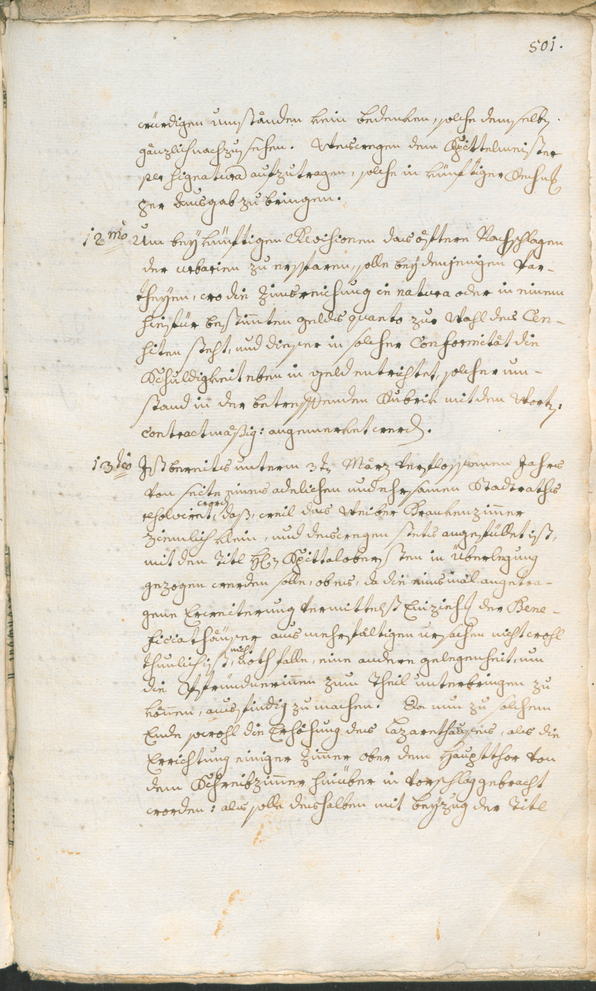 501.
würdigen umständen kein bedenken, solche demselb
gänzlich nachzusehen. Weswegen dem Spittelmeister
per Signatura aufzutragen, solche in künftiger Rechnung
per Ausgab zu bringen.
12mo Um bey künftigen Revisionen das öftere Nachschlagen
der urbarien zu ersparen, solle bey denjenigen Par-
theyen, wo die Zinsreichung in natura oder in einem
hiefür bestimten geld quanto zur Wahl des Cen-
siten steht, und dieser in solcher Conformität die
Schuldigkeit eben in geld entrichtet, solcher um-
stand in der betreffenden Rubrik mit dem Wort:
contractmäßig: angemerket werd.
13tio Ist bereits unterm 3t März verflossenen Jahrs
von seite eines adelichen und ehrsamen Stadtraths
resolviret word, daß, weil das Weiber Krankenzimer
ziemlich klein, und deswegen stets angefüllet ist,
mit den Titl H Spittalobersten in Überlegung
gezogen werden solle, ob es, da die einsmal angetra-
gene Erweiterung vermittelst Einzieh der Bene-
ficiathäuser aus mehrfältigen ursachen nicht wohl
thunlich ist, nicht noth falle, eine andere gelegenheit, um
die Pfründnerinen zum Theil unterbringen zu
können, ausfindig zu machen. Da nun zu solchem
Ende sowohl die Erhöhung des Lazarethhauses, als die
Errichtung einiger Zimer ober dem Haupttthor von
dem Schreibzimer hinüber in vorschlag gebracht
worden: als solle deshalben mit beyzug der Titl